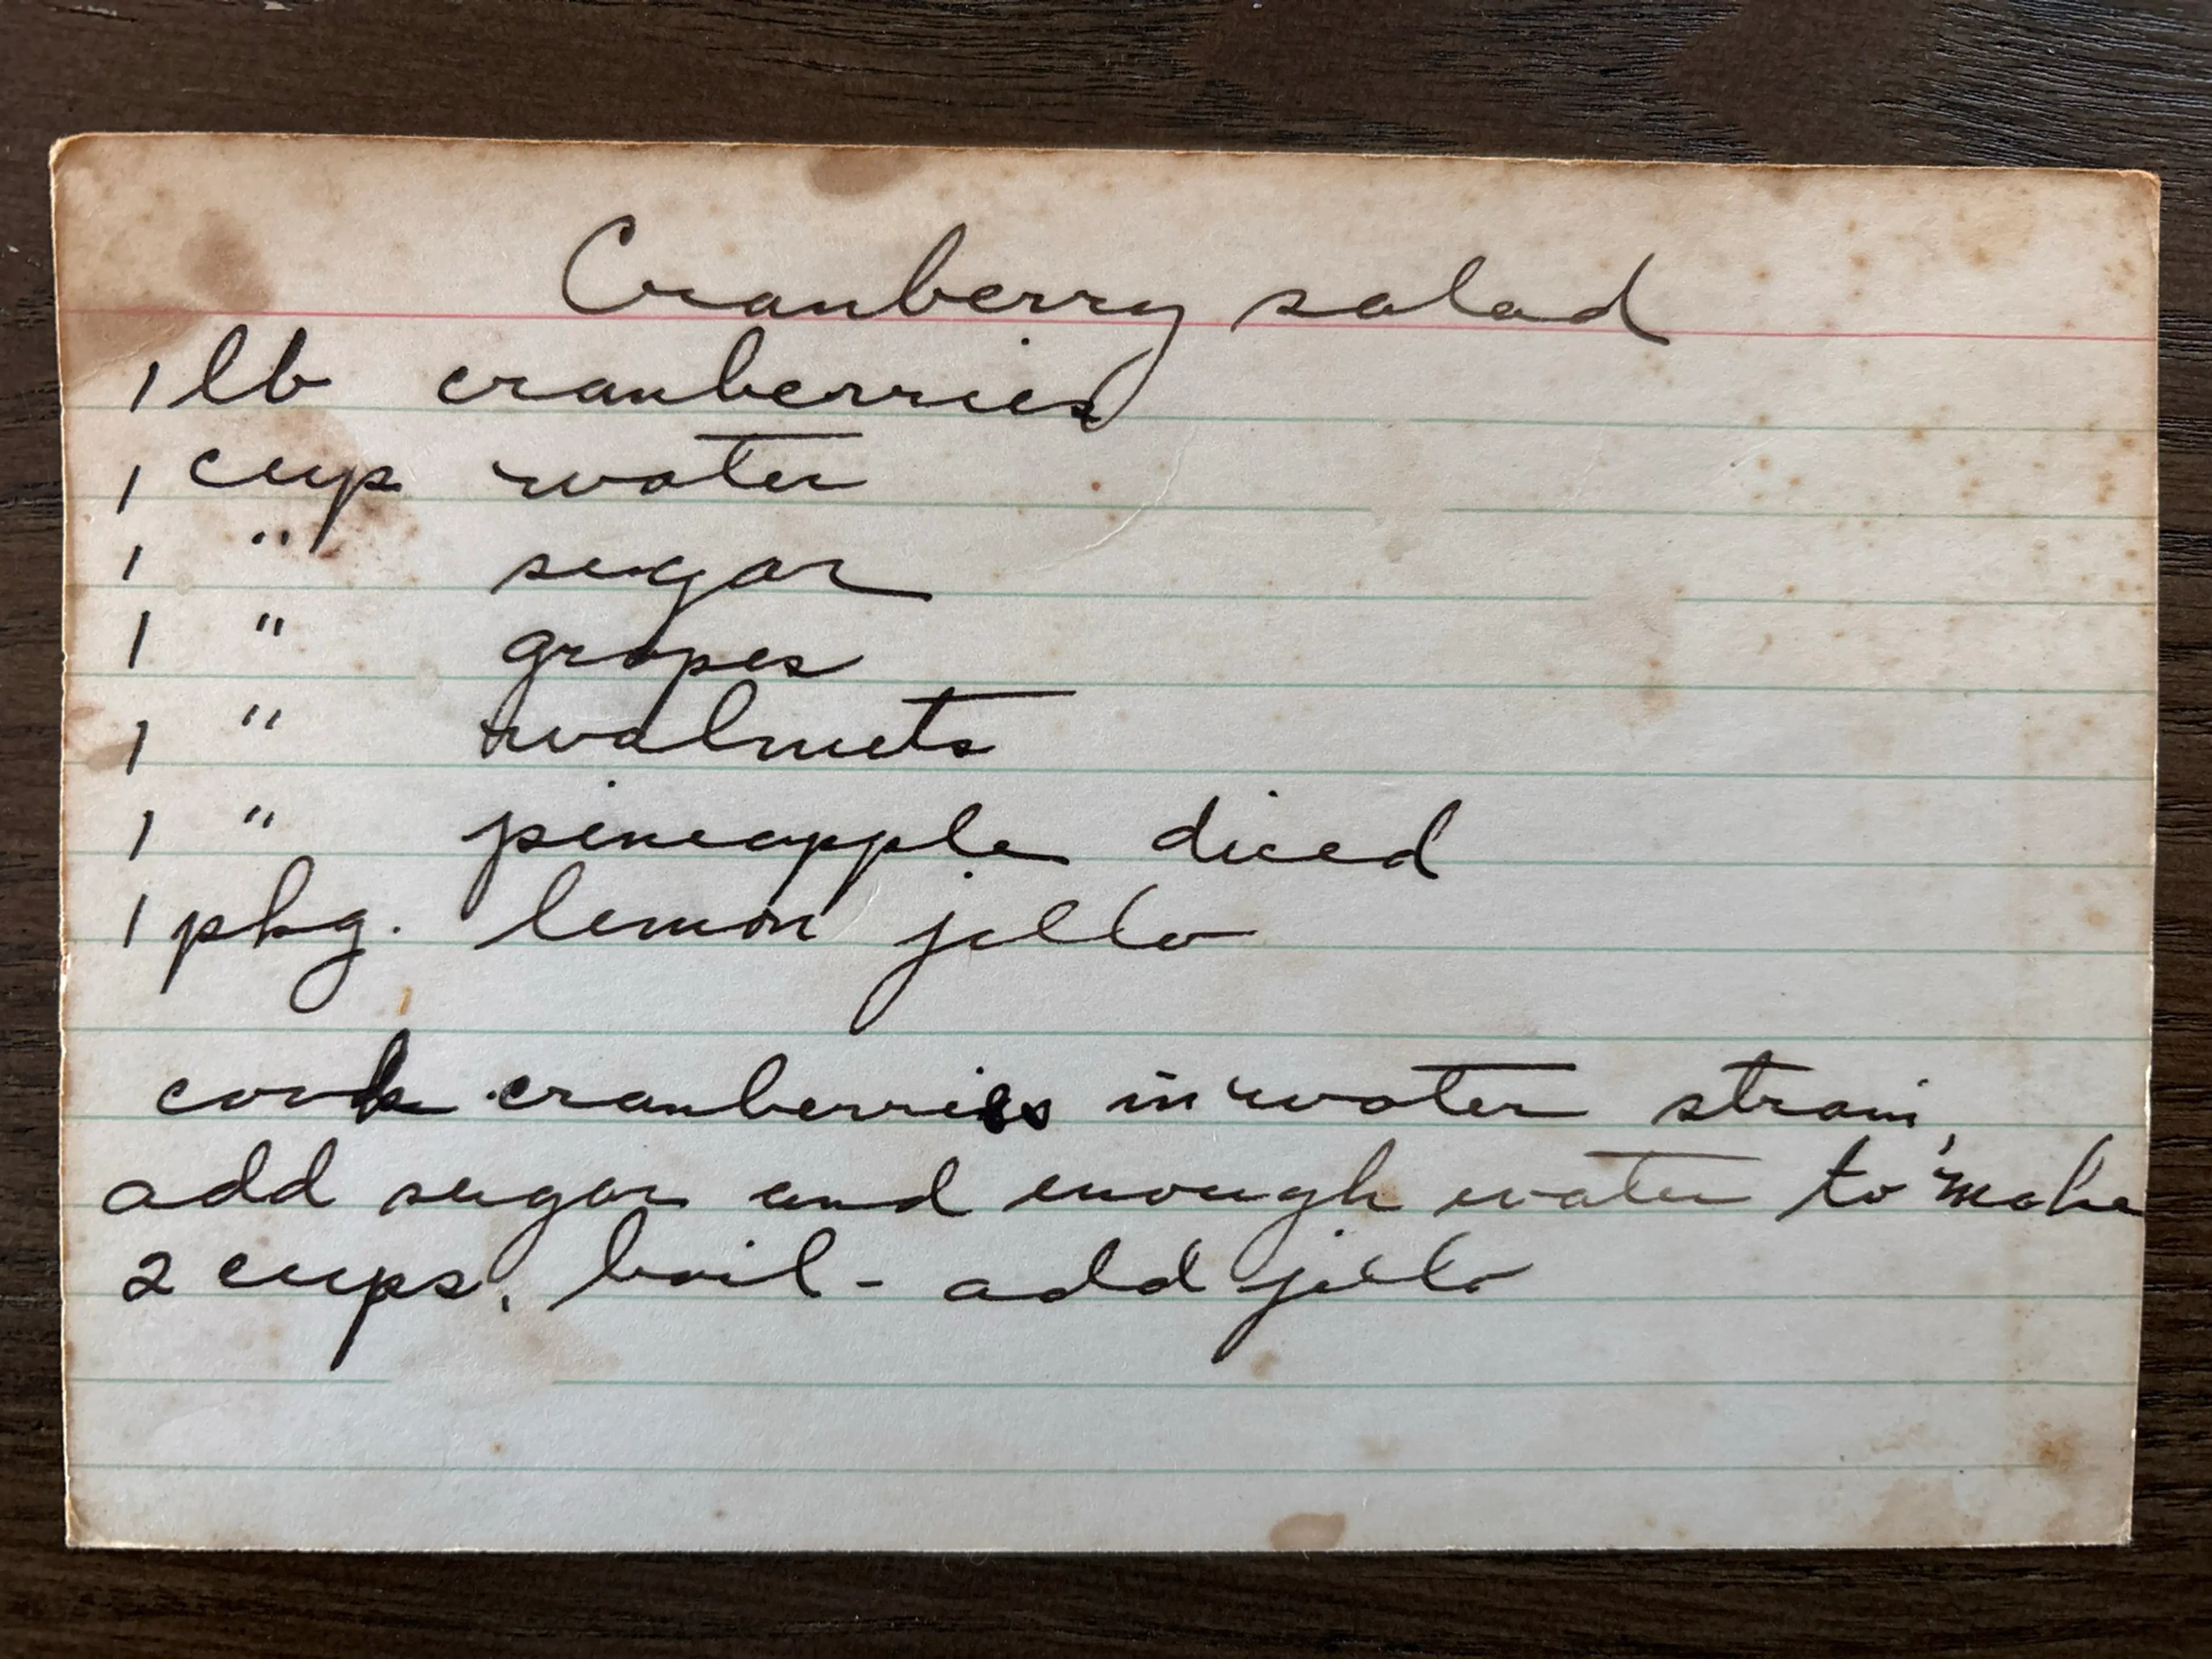 Cranberry salad
1 lb cranberries
1 cup water
1 " sugar
1 " grapes
1 " walnuts
1 " pineapple diced
1 pkg. lemon jello
cook cranberries in water strain,
add sugar and enough water to make
2 cups. boil - add jello